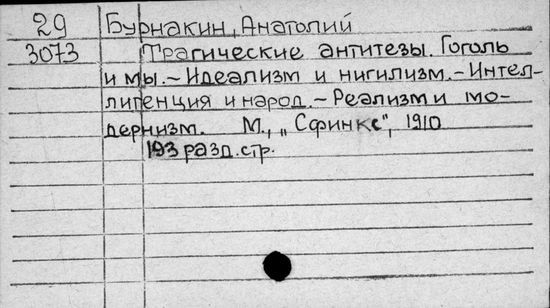 29 Бурнакин, Анатолий
3073 Трагические антитезы. Гоголь
и мы.-Идеализм и нигилизм.-Интел-
лигенция и народ.-Реализм и мо-
дернизм. М., „Сфинкс", 1910
193 разд.стр.